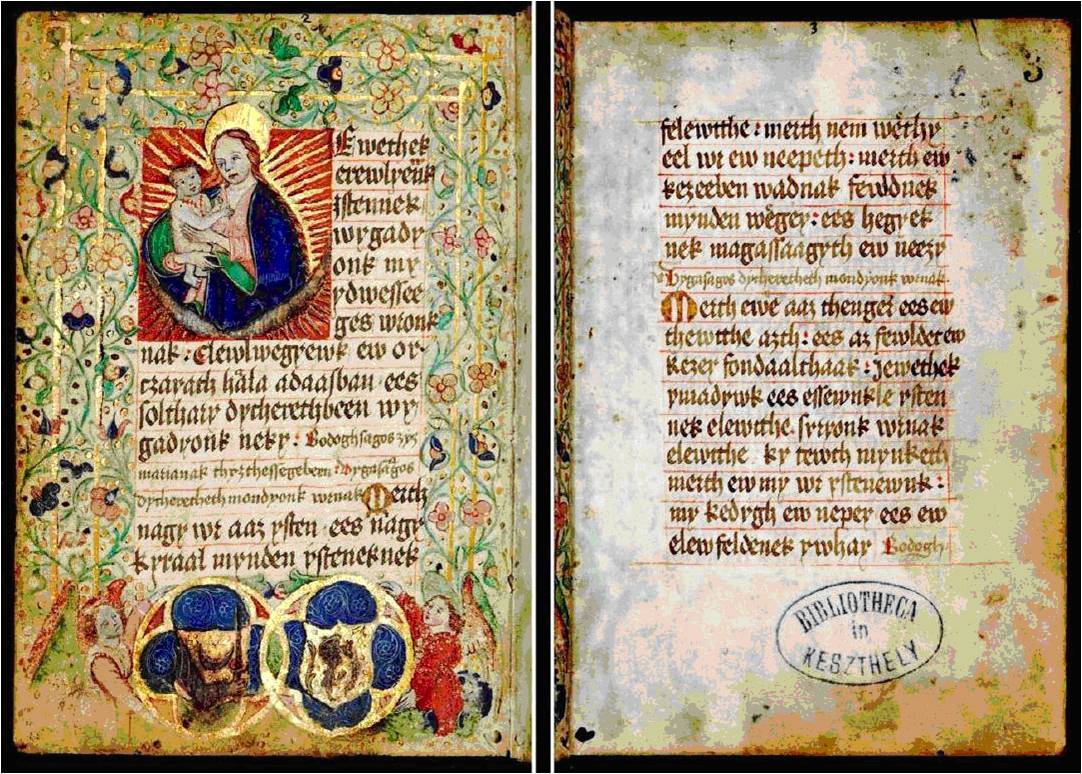 2
Ewethek
erewlyenk
Jstennek
wygady
onk my
ydwessee
ges wronk
nak : Elewlwegyewk ew or-
czarath hala adaasban ees
solthary dycherethbeen wy
gadyonk neky : Bodoghsagos zyz
marianak thyzthessegebeen : vygasagos
dycherethech mondyonk wrnak Merth
nagy wr aaz ysten ees nagy
kyraal mynden ysteneknek
3
3
felewtthe : merth nem wethy
eel wr ew neepeth : merth ew
kezeeben wadnak fewldnek
mynden wegey : ees hegyek
nek magassaagyth ew neezy
Vygasagos dycherethech mondyonk wrnak
Merth ewe aaz thenger ees ew
thewtthe azth : ees az fewldet ew
kezey fondaalthaak : Jewethek
ymadywk ees essewnkle ysten
nek elewtthe syryonk wrnak
elewtthe ky tewth mynketh
merth ew my wr ystenewnk :
my kedygh ew nepey ees ew
elewfeldenek ywhay Bodogh
BIBLIOTHECA
in
KESZTHELY